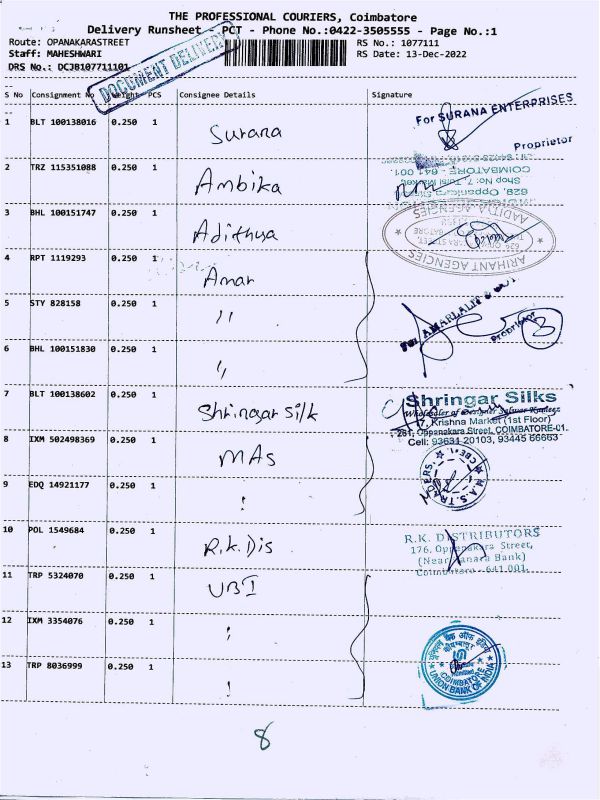 THE PROFESSIONAL COURIERS, Coimbatore
Delivery Runsheet - PCT - Phone No.:0422-3505555 - Page No.:1
Route: OPANAKARASTREET RS No.: 1077111
Staff: MAHESHWARI RS Date: 13-Dec-2022
DRS No.: DCJB107711101
DOCUMENT DELIVERY
S No Consignment No Weight PCS Consignee Details Signature
1 BLT 100138016 0.250 1 Surana
For SURANA ENTERPRISES
Proprietor
2 TRZ 115351088 0.250 1 Ambika
628, Oppanakara Street
Shop No: 7, Tulsi Market,
COIMBATORE - 641 001.
3 BHL 100151747 0.250 1 Adithya
AADITYA AGENCIES
ARIHANT AGENCIES
4 RPT 1119293 0.250 1 Amar
5 STY 828158 0.250 1 "
For AMARLALIT
Proprietor
3
6 BHL 100151830 0.250 1 "
7 BLT 100138602 0.250 1 Shringar Silk
Shringar Silks
Wholesaler of Designer Salwar Kameez
7, Krishna Market (1st Floor)
261, Oppanakara Street, COIMBATORE-01.
Cell: 93631 20103, 93445 66663
8 IXM 502498369 0.250 1 MAS
M.A.S. TRADERS
CBE-1
9 EDQ 14921177 0.250 1 !
10 POL 1549684 0.250 1 R.K.Dis
R.K. DISTRIBUTORS
176, Oppanakara Street,
(Near Canara Bank)
Coimbatore - 641 001.
11 TRP 5324070 0.250 1 UBI
12 IXM 3354076 0.250 1 ;
13 TRP 8036999 0.250 1 !
यूनियन बैंक ऑफ इंडिया
कोयम्बत्तूर
COIMBATORE
UNION BANK OF INDIA
8